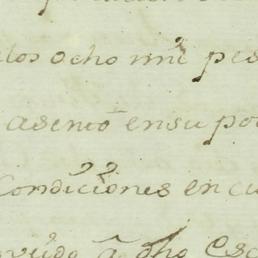 los ocho mil pes
asento en su po
Condiciones en cu
a dho Esc